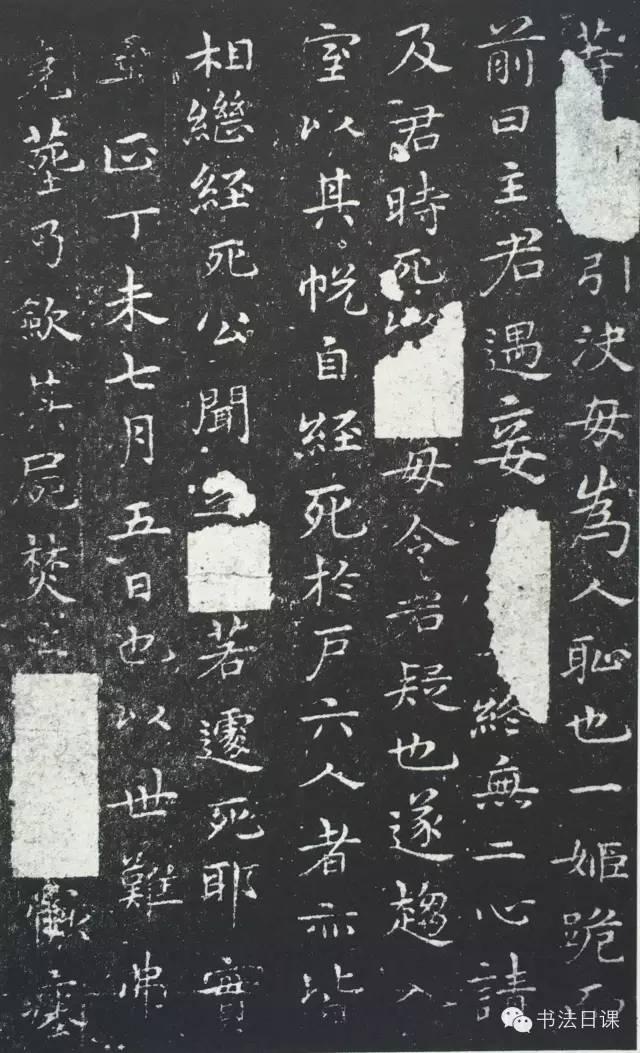 等引決毋為人恥也一姬跪而
前曰主君遇妾終無二心請
及君時死毋令君疑也遂趨入
室以其帨自經死於戶六人者亦皆
相繼經死公聞之若遽死耶實
至正丁未七月五日也以世難弗
克葬乃斂其屍焚之瘞
书法日课